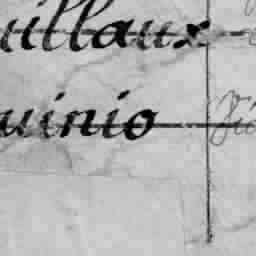 uillaux -
uinio